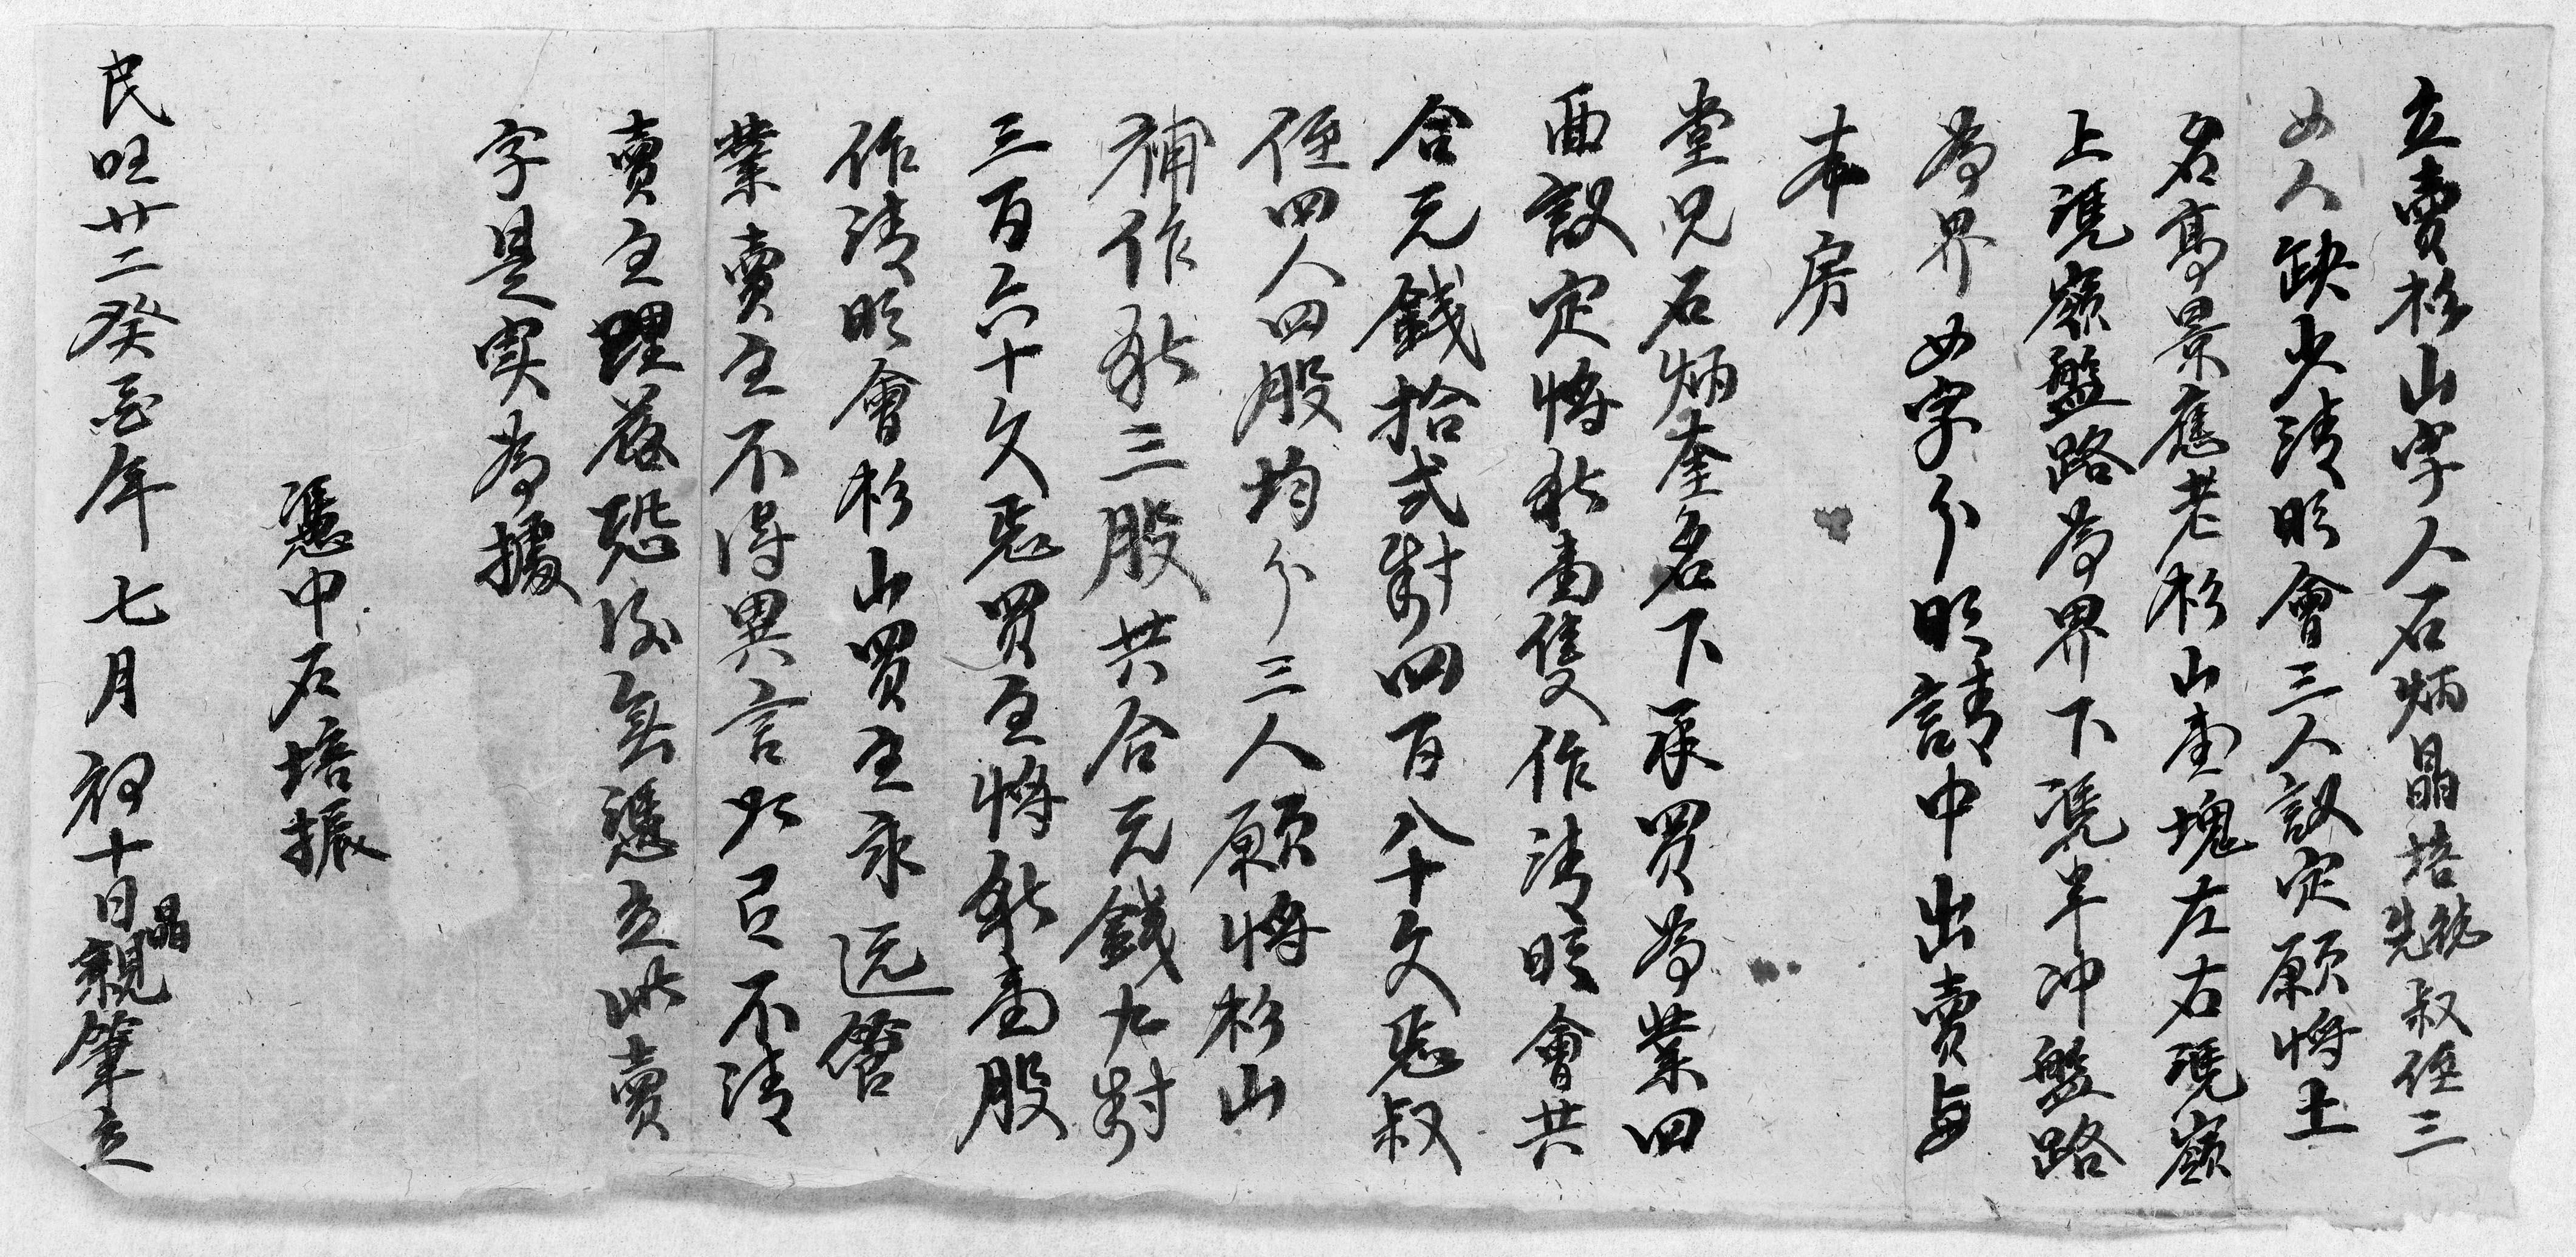 立賣杉山字人石炳晶培先統叔侄三
女人缺少清明會三人議定願將土
名高景應老杉山壹塊左右憑嶺
上憑嶺盤路為界下憑半冲盤路
為界女字分明請中出賣与
本房
堂兄石炳奎名下承買為業四
面議定將秋壹隻作清明會共
合元錢拾弍封四百八十文惡叔
侄四人四股均分三人願將杉山
補作秋三股共合元錢九封
三百六十文惡買主將秋壹股
作清明會杉山買主永远管
業賣主不得異言如有不清
賣主理落恐後無憑立此賣
字是実為據
憑中石培振
民国廿二癸亥年七月初十日晶親筆立